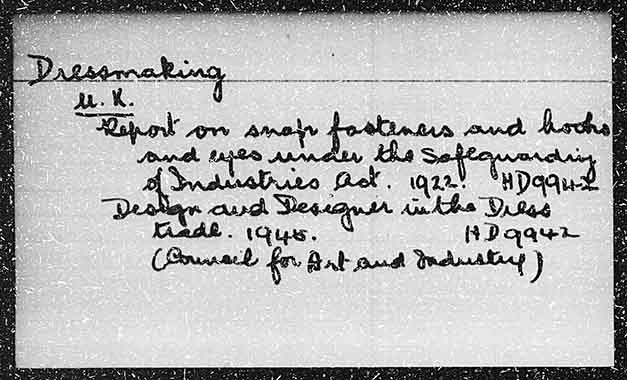 Dressmaking
U.K.
Report on snap fasteners and hooks
and eyes under the Safeguarding
of Industries Act. 1922. HD9942
Design and Designer in the Dress
trade. 1945. HD9942
(Council for Art and Industry)